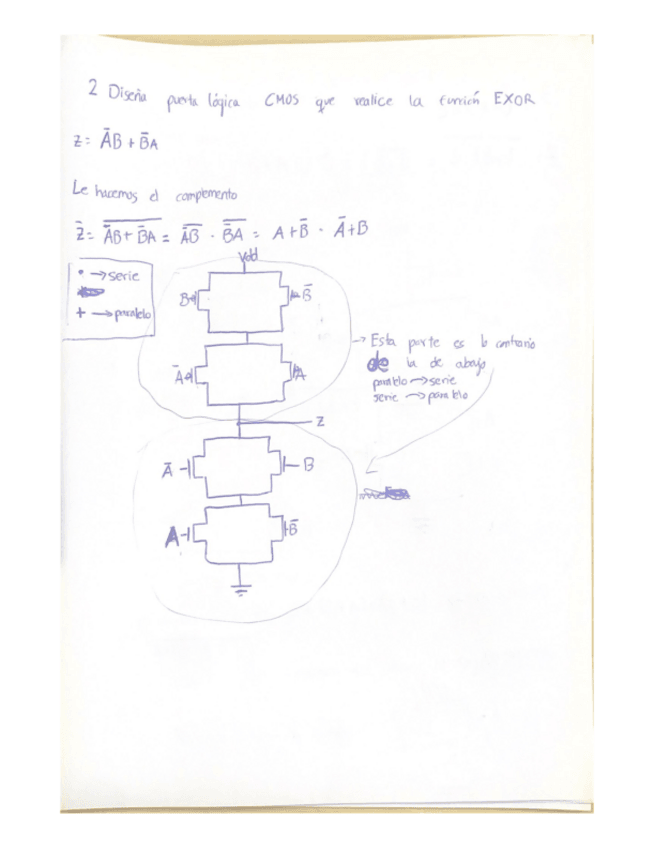 2 Diseña puerta lógica CMOS que realice la función EXOR
Z = A̅B + B̅A
Le hacemos el complemento
Z̅ = \overline{A̅B + B̅A} = \overline{A̅B} · \overline{B̅A} = A+B̅ · A̅+B
• → serie
+ → paralelo
Vdd
B
B̅
A̅
A
→ Esta parte es lo contrario
de la de abajo
paralelo → serie
serie → paralelo
Z
A̅
B
A
B̅